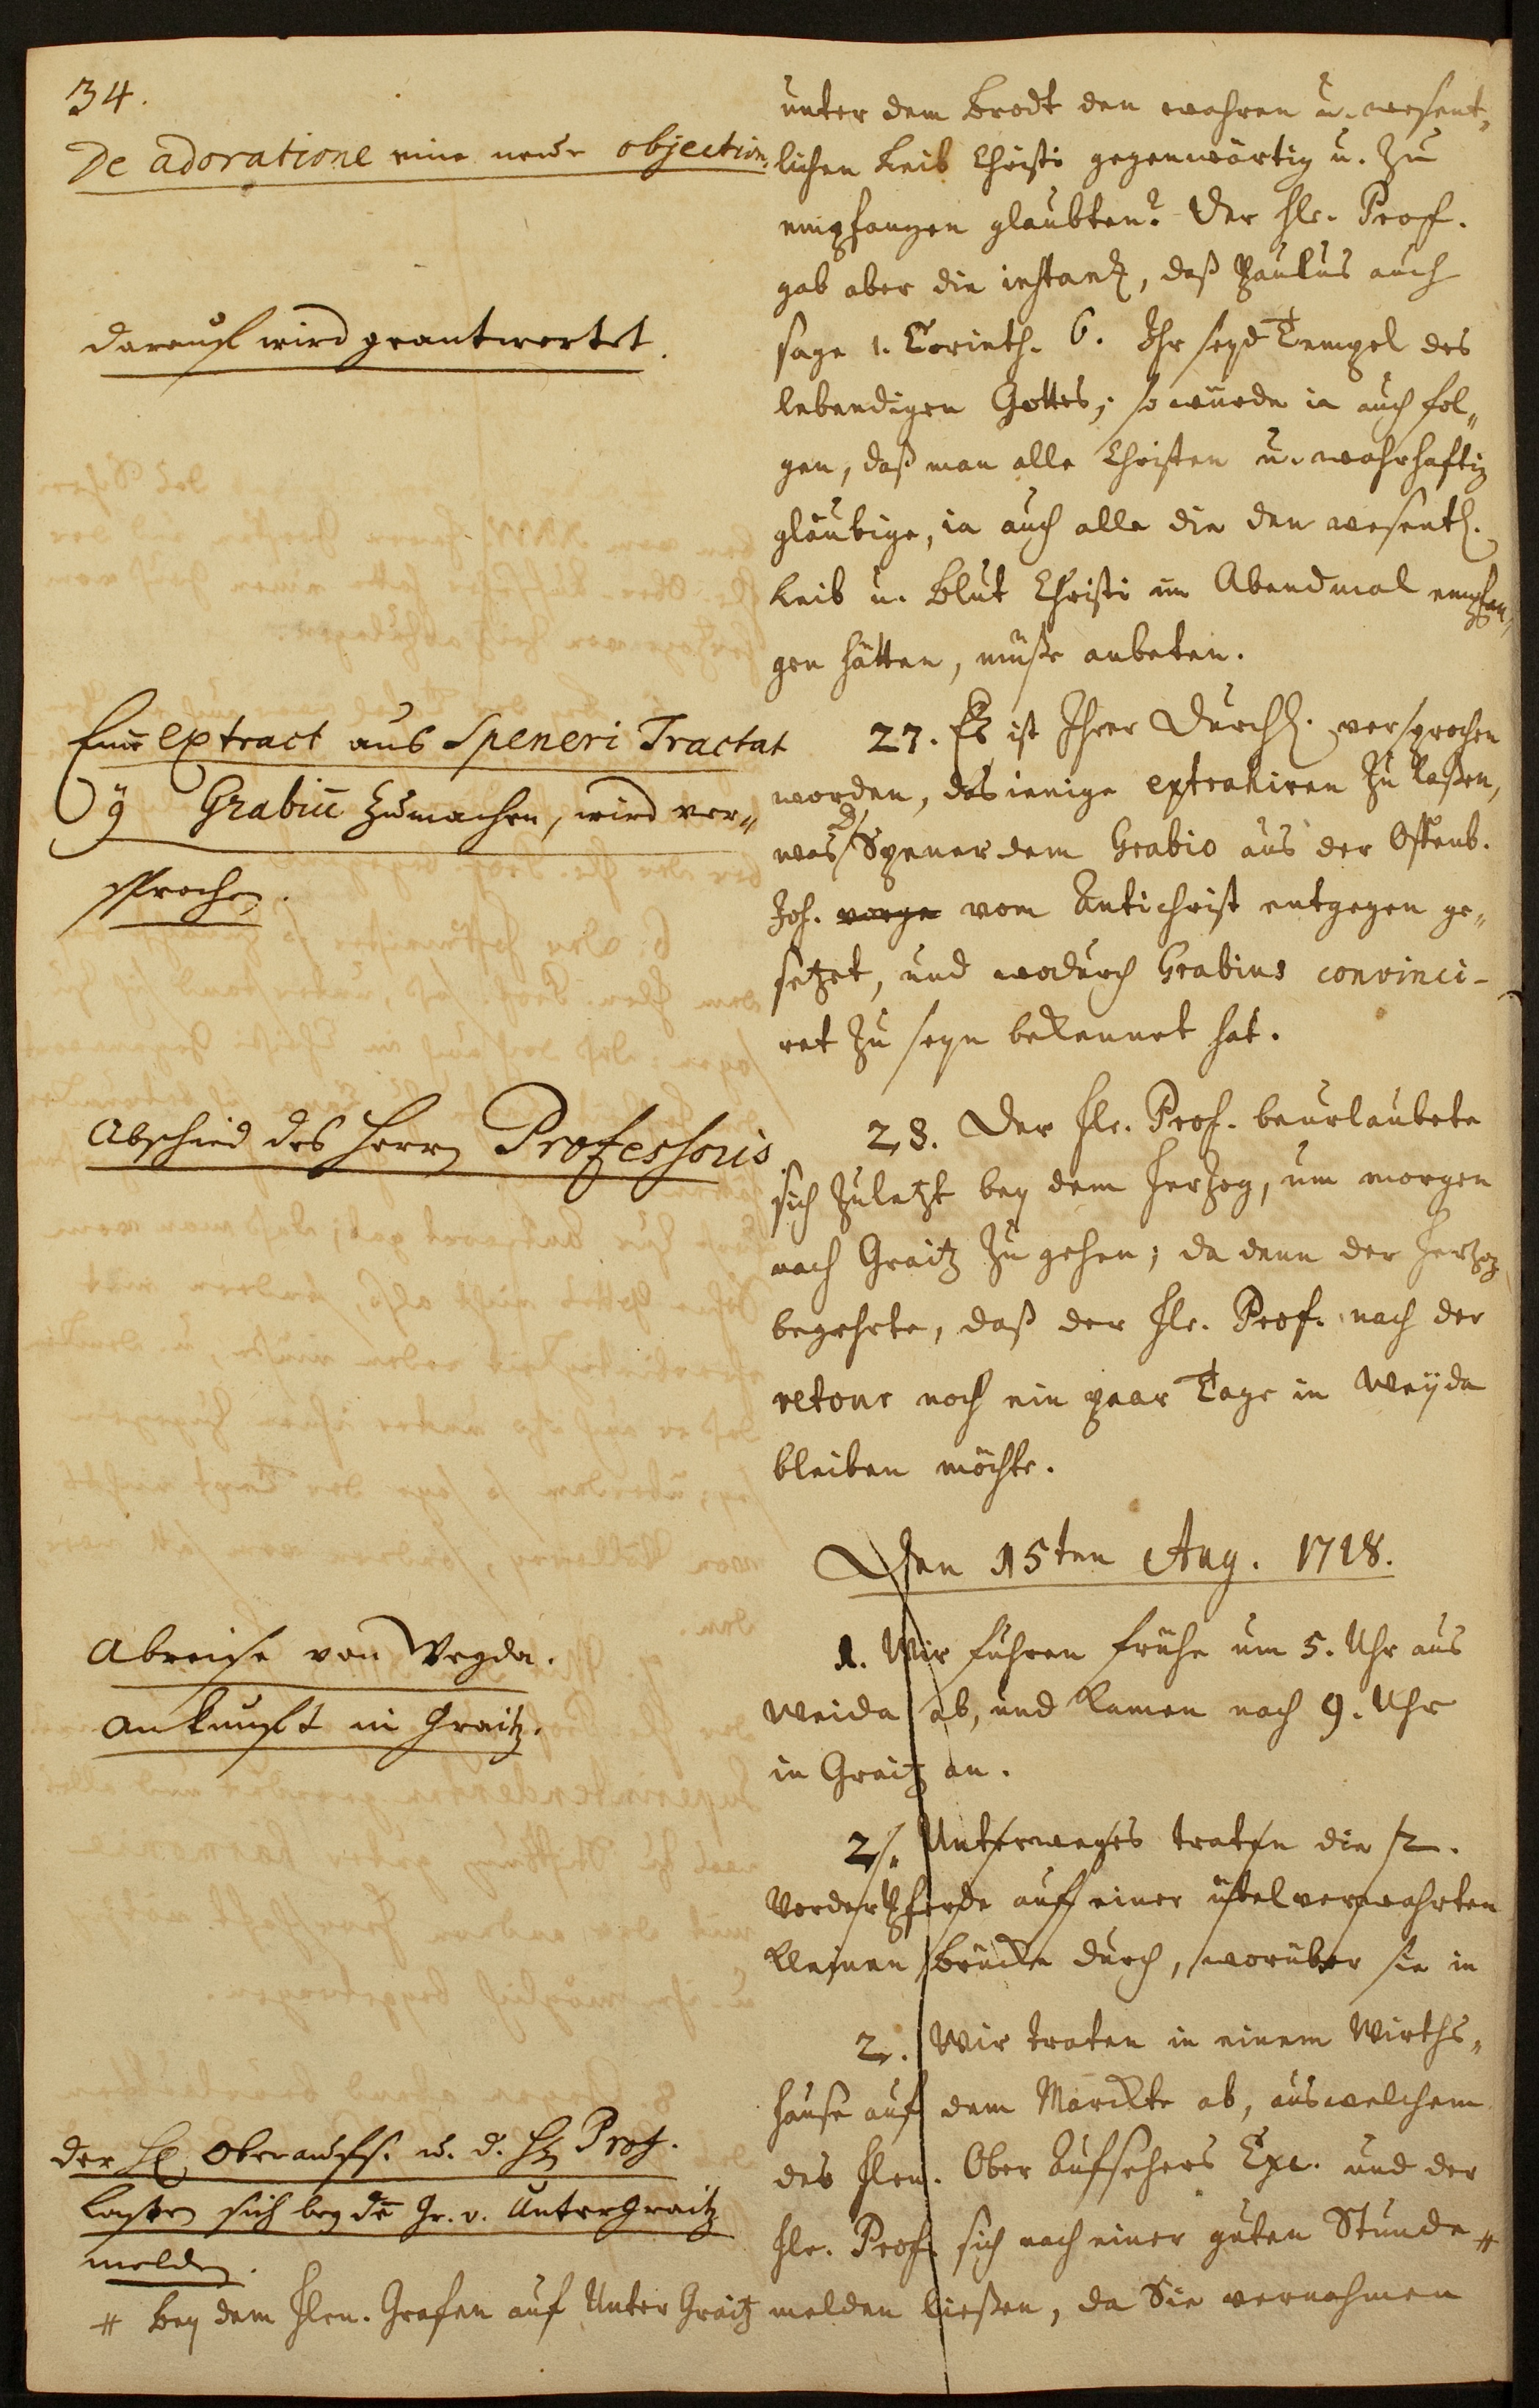 34.
De adoratione eine neue objection.
darauf wird geantwortet.
Einē extract aus Speneri Tractat
Grabiū zumachen, wird ver„
sprochen.
Abschied des Herrn Professoris
Abreise von Weyda.
Ankunfft in Graitz.
der H. Oberaufs. u. d. H. Prof.
laßen sich bey dē Gr. v. Untergraitz
melden.
# bey dem Hrn. Grafen auf Unter Graitz
unter dem Brodt den wahren u. wesent„
lichen Leib Christi gegenwärtig u. zu
empfangen glaubten? Der Hr. Prof.
gab aber die instanz, daß Paulus auch
sage 1. Corinth. 6. Ihr seyd Tempel des
lebendigen Gottes; so würde ia auch fol„
gen, daß man alle Christen u. wahrhaftig
gläubige, ia auch alle die den wesentl.
Leib u. Blut Christi im Abendmal empfan„
gen hätten, müße anbeten.
27. Es ist Ihrer Durchl. versprochen
worden, dasienige extrahiren zu laßen,
was D. Spener dem Grabio aus der Offenb.
Joh. vorge vom Antichrist entgegen ge„
setzet, und wodurch Grabius convinci-
ret zu seyn bekennet hat.
28. Der Hr. Prof. beurlaubete
sich zuletzt bey dem Herzog, um morgen
nach Graitz zu gehen; da denn der Herzog
begehrte, daß der Hr. Prof. nach der
retour noch ein paar Tage in Weyda
bleiben möchte.
Den 15ten Aug. 1718.
1. Wir fuhren frühe um 5. Uhr aus
Weida ab, und kamen nach 9. Uhr
in Graitz an.
2. Unterweges traten die 2.
Vorder Pferde auf einer übel verwahrten
kleinen Brücke durch, worüber sie in
2. Wir traten in einem Wirths„
hause auf dem Marckte ab, aus welchem
des Hrn. Ober Aufsehers Exc. und der
Hr. Prof. sich nach einer guten Stunde #
melden ließen, da Sie vernahmen